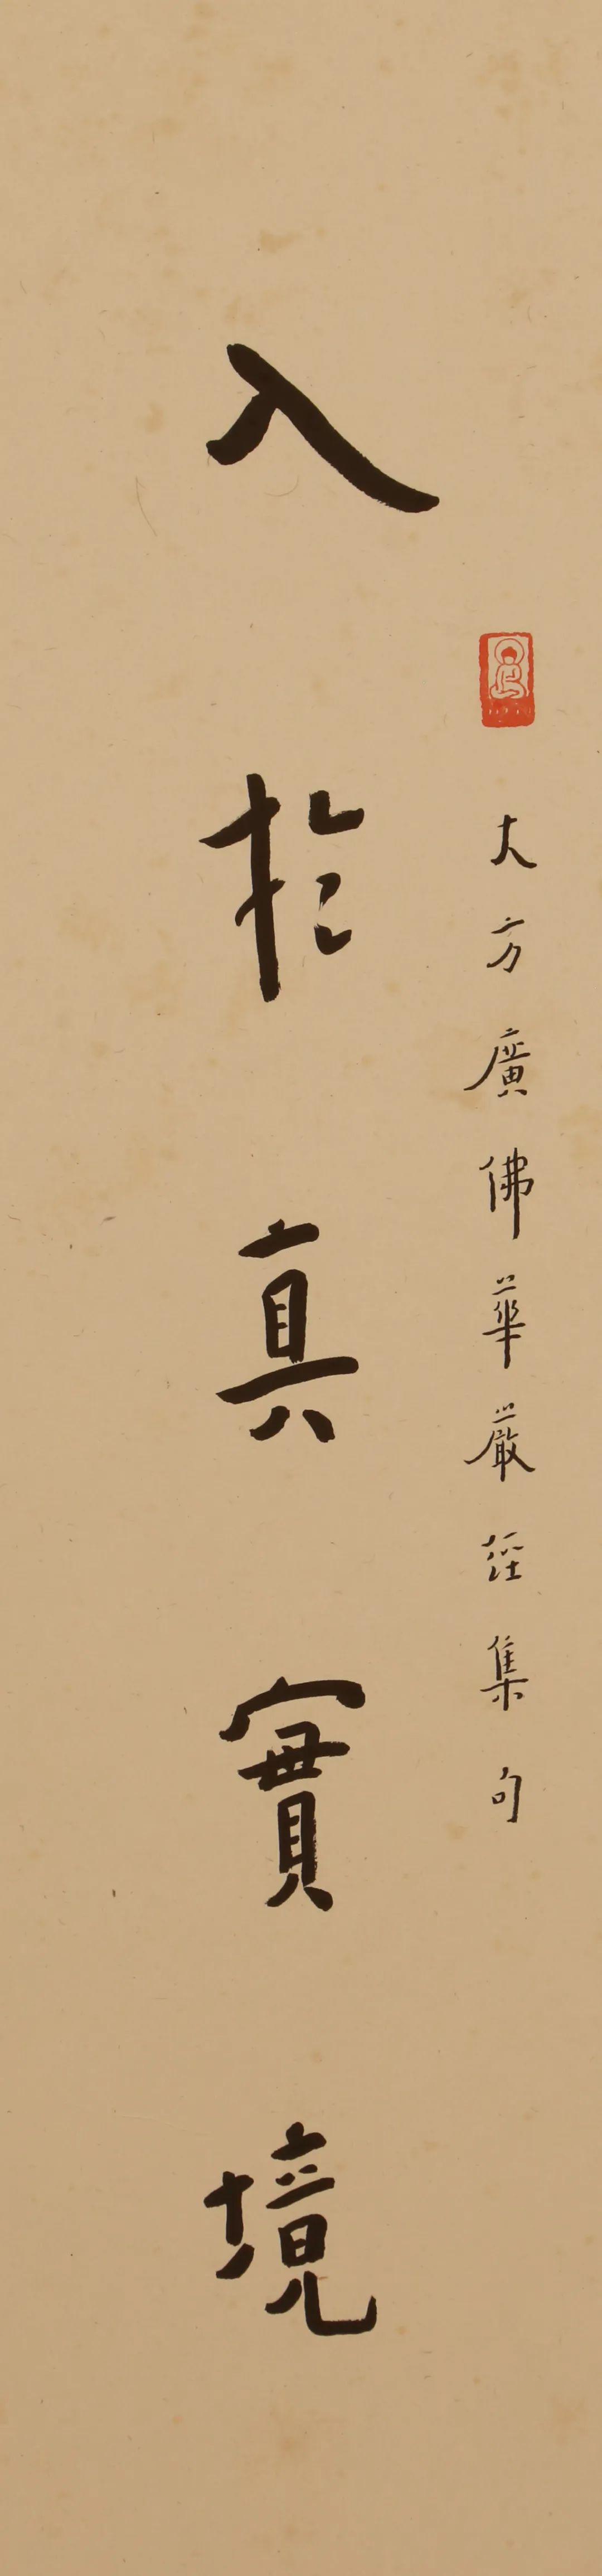 大方廣佛華嚴經集句
入於真實境